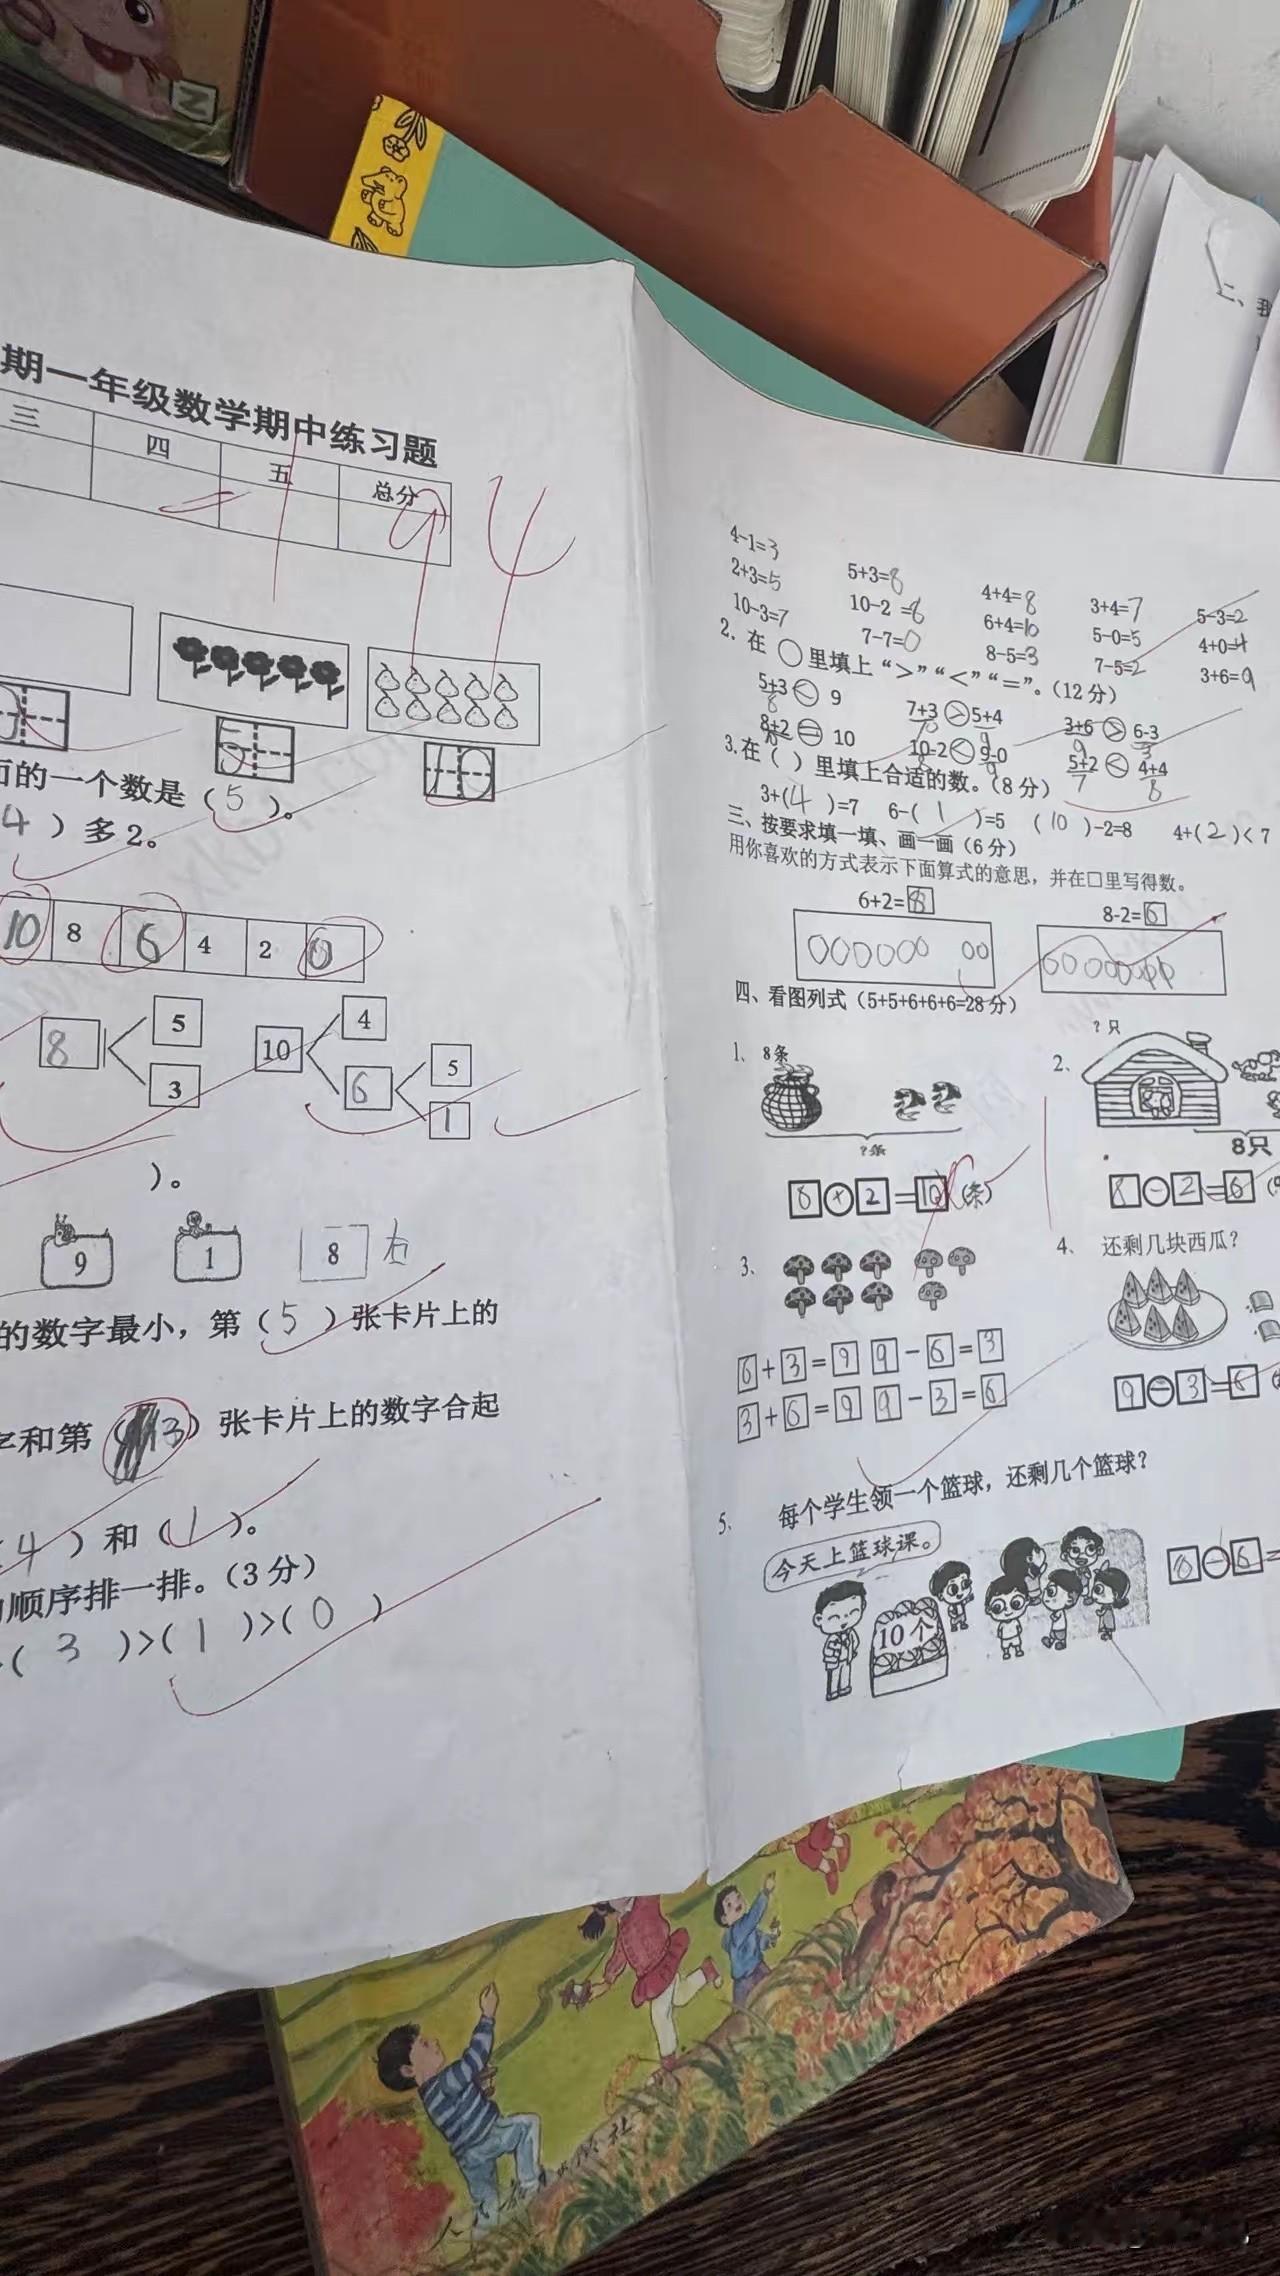 期一年级数学期中练习题
三 四 五 总分
94
5 10
面的一个数是（5）。
4）多2。
10 8 6 4 2 0
8 5 3 10 4 6 5 1
）。
9 1 8 右
的数字最小，第（5）张卡片上的
字和第（3）张卡片上的数字合起
（4）和（1）。
顺序排一排。（3分）
（3）>（1）>（0）
4-1=3 5+3=8 4+4=8 3+4=7 5-3=2
2+3=5 10-2=8 6+4=10 5-0=5 4+0=4
10-3=7 7-7=0 8-5=3 7-5=2 3+6=9
2. 在○里填上“>”“<”“=”。（12分）
5+3<9 7+3>5+4 3+6>6-3
8 10 9 9 3
8+2=10 10-2<9-0 5+2<4+4
10 8 9 7 8
3.在（ ）里填上合适的数。（8分）
3+(4)=7 6-(1)=5 (10)-2=8 4+(2)<7
三、按要求填一填、画一画（6分）
用你喜欢的方式表示下面算式的意思，并在□里写得数。
6+2=8 8-2=6
四、看图列式（5+5+6+6+6=28分）
1、 8条
?条
8+2=10（条）
2、 ?只
8只
8-2=6
3、
6+3=9 9-6=3
3+6=9 9-3=6
4、 还剩几块西瓜？
9-3=6
5、 每个学生领一个篮球，还剩几个篮球？
今天上篮球课。
10个
-6=
人民教育出版社